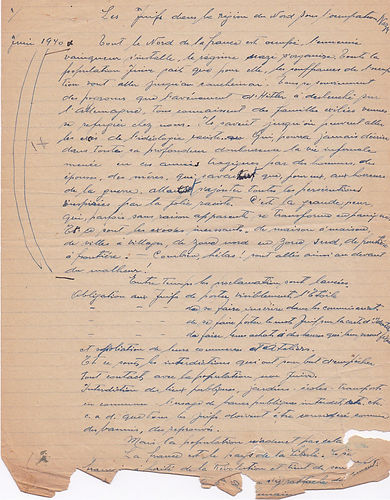 Les Juifs dans la région du Nord sous l'occupation
Juin 1940 Tout le Nord de la France est occupé, l'ennemi
vainqueur s'installe, le régime nazi s'organise. Toute la
population juive sait que pour elle, les souffrances de l'occupa-
tion vont aller jusqu'au
des que l'avènement d'Hitler a déclenché sur
l'Allemagne. Tous connaissent des familles entières venues
se réfugier chez nous. Ils savent jusqu'où peuvent aller
les de l'idéologie raciste. Qui pourra jamais décrire
dans toute sa profondeur douloureuse la vie infernale
menée en ces années tragiques par des hommes, des
épouses, des mères, qui que, pour eux, aux horreurs
de la guerre, allait s'ajouter toutes les persécutions
inspirées par la folie raciste. C'est la grande peur
qui, parfois sans raison apparente se transforme en panique.
Et ce sont les exodes incessants, de maison à maison,
de villes à villages, de zone nord en zone sud, de
à frontière : Combien, hélas! sont allés ainsi au devant
du malheur!
Entre temps les proclamations sont lancées
Obligation aux juifs de porter visiblement l'Étoile
de se faire inscrire dans les commissariats
de se faire poser le mot Juif sur la carte d'
de faire
et spoliation de leurs commerces et ateliers
Et ce sont les interdictions qui ont pour but d'empêcher
tout contact avec la population non juive.
Interdiction de lieux publiques, jardins, écoles, transports
en commun. L'usage de bancs publiques interdits, etc. etc.
c. a. d. que tous les juifs doivent être considérés comme
des bannis, des réprouvés.
Mais la population
La France est le pays de la liberté. Le
de la Révolution et tout de